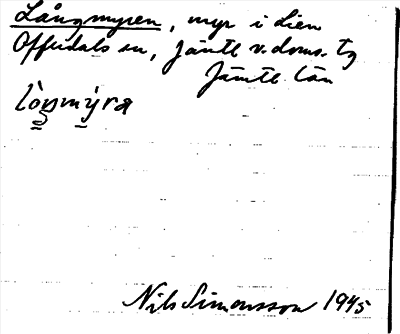 Långmyren, myr i Lien
Offerdals sn, Jämtl. v. doms. tg
Jämtl. län
lòŋmýra
Nils Simonsson 1945